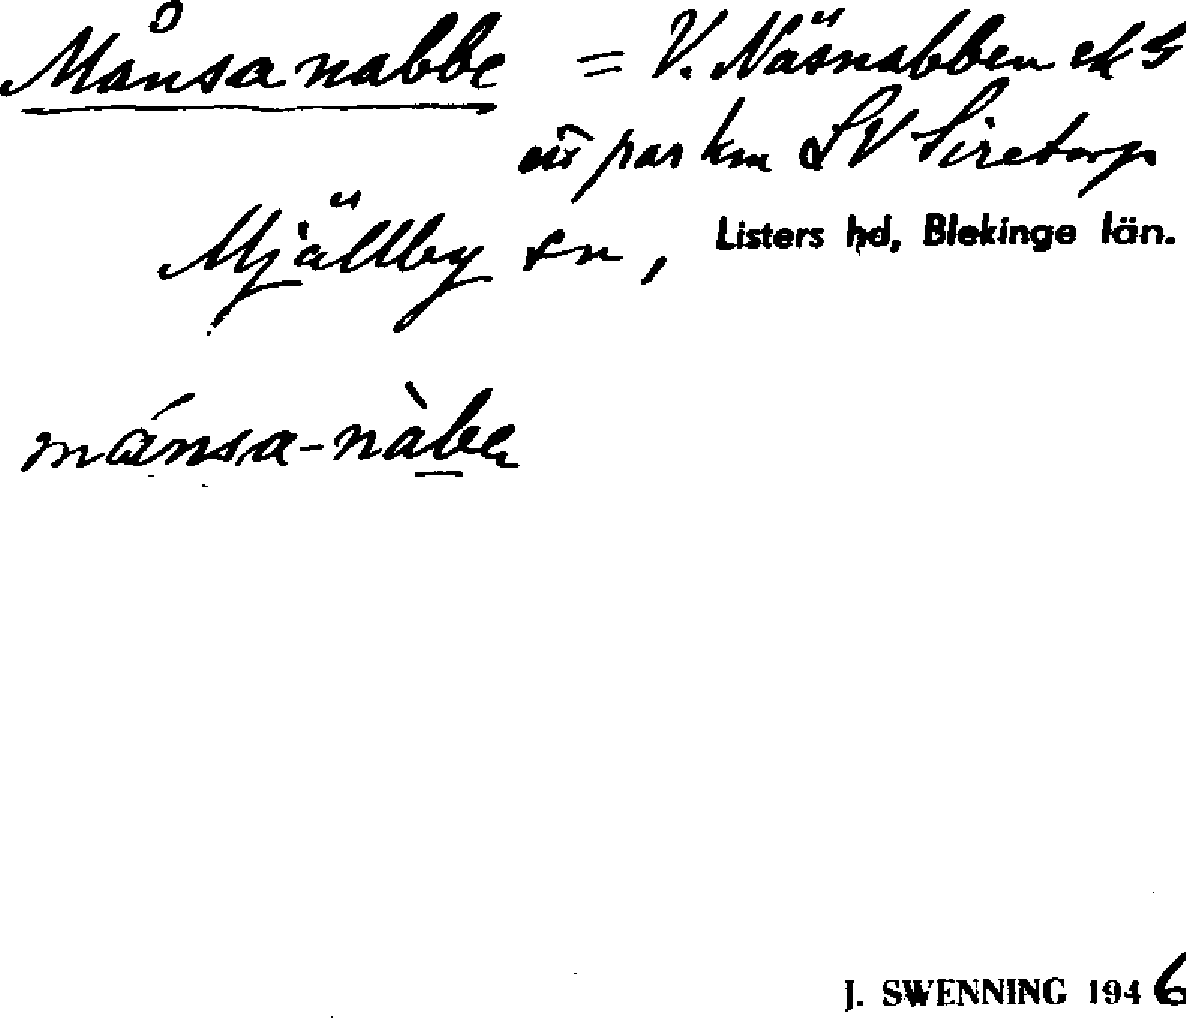 Månsanabbe = V. Näsnabben ek 5
ett par km SV Siretorp
Mjällby sn, Listers hd, Blekinge län.
mánsa-nàbe
J. SWENNING 1946